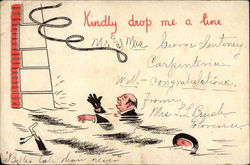 Kindly drop me a line
Mr & Mrs George
Carpenteria
congratulations.
From
Mrs
Florence
"Better late than never"